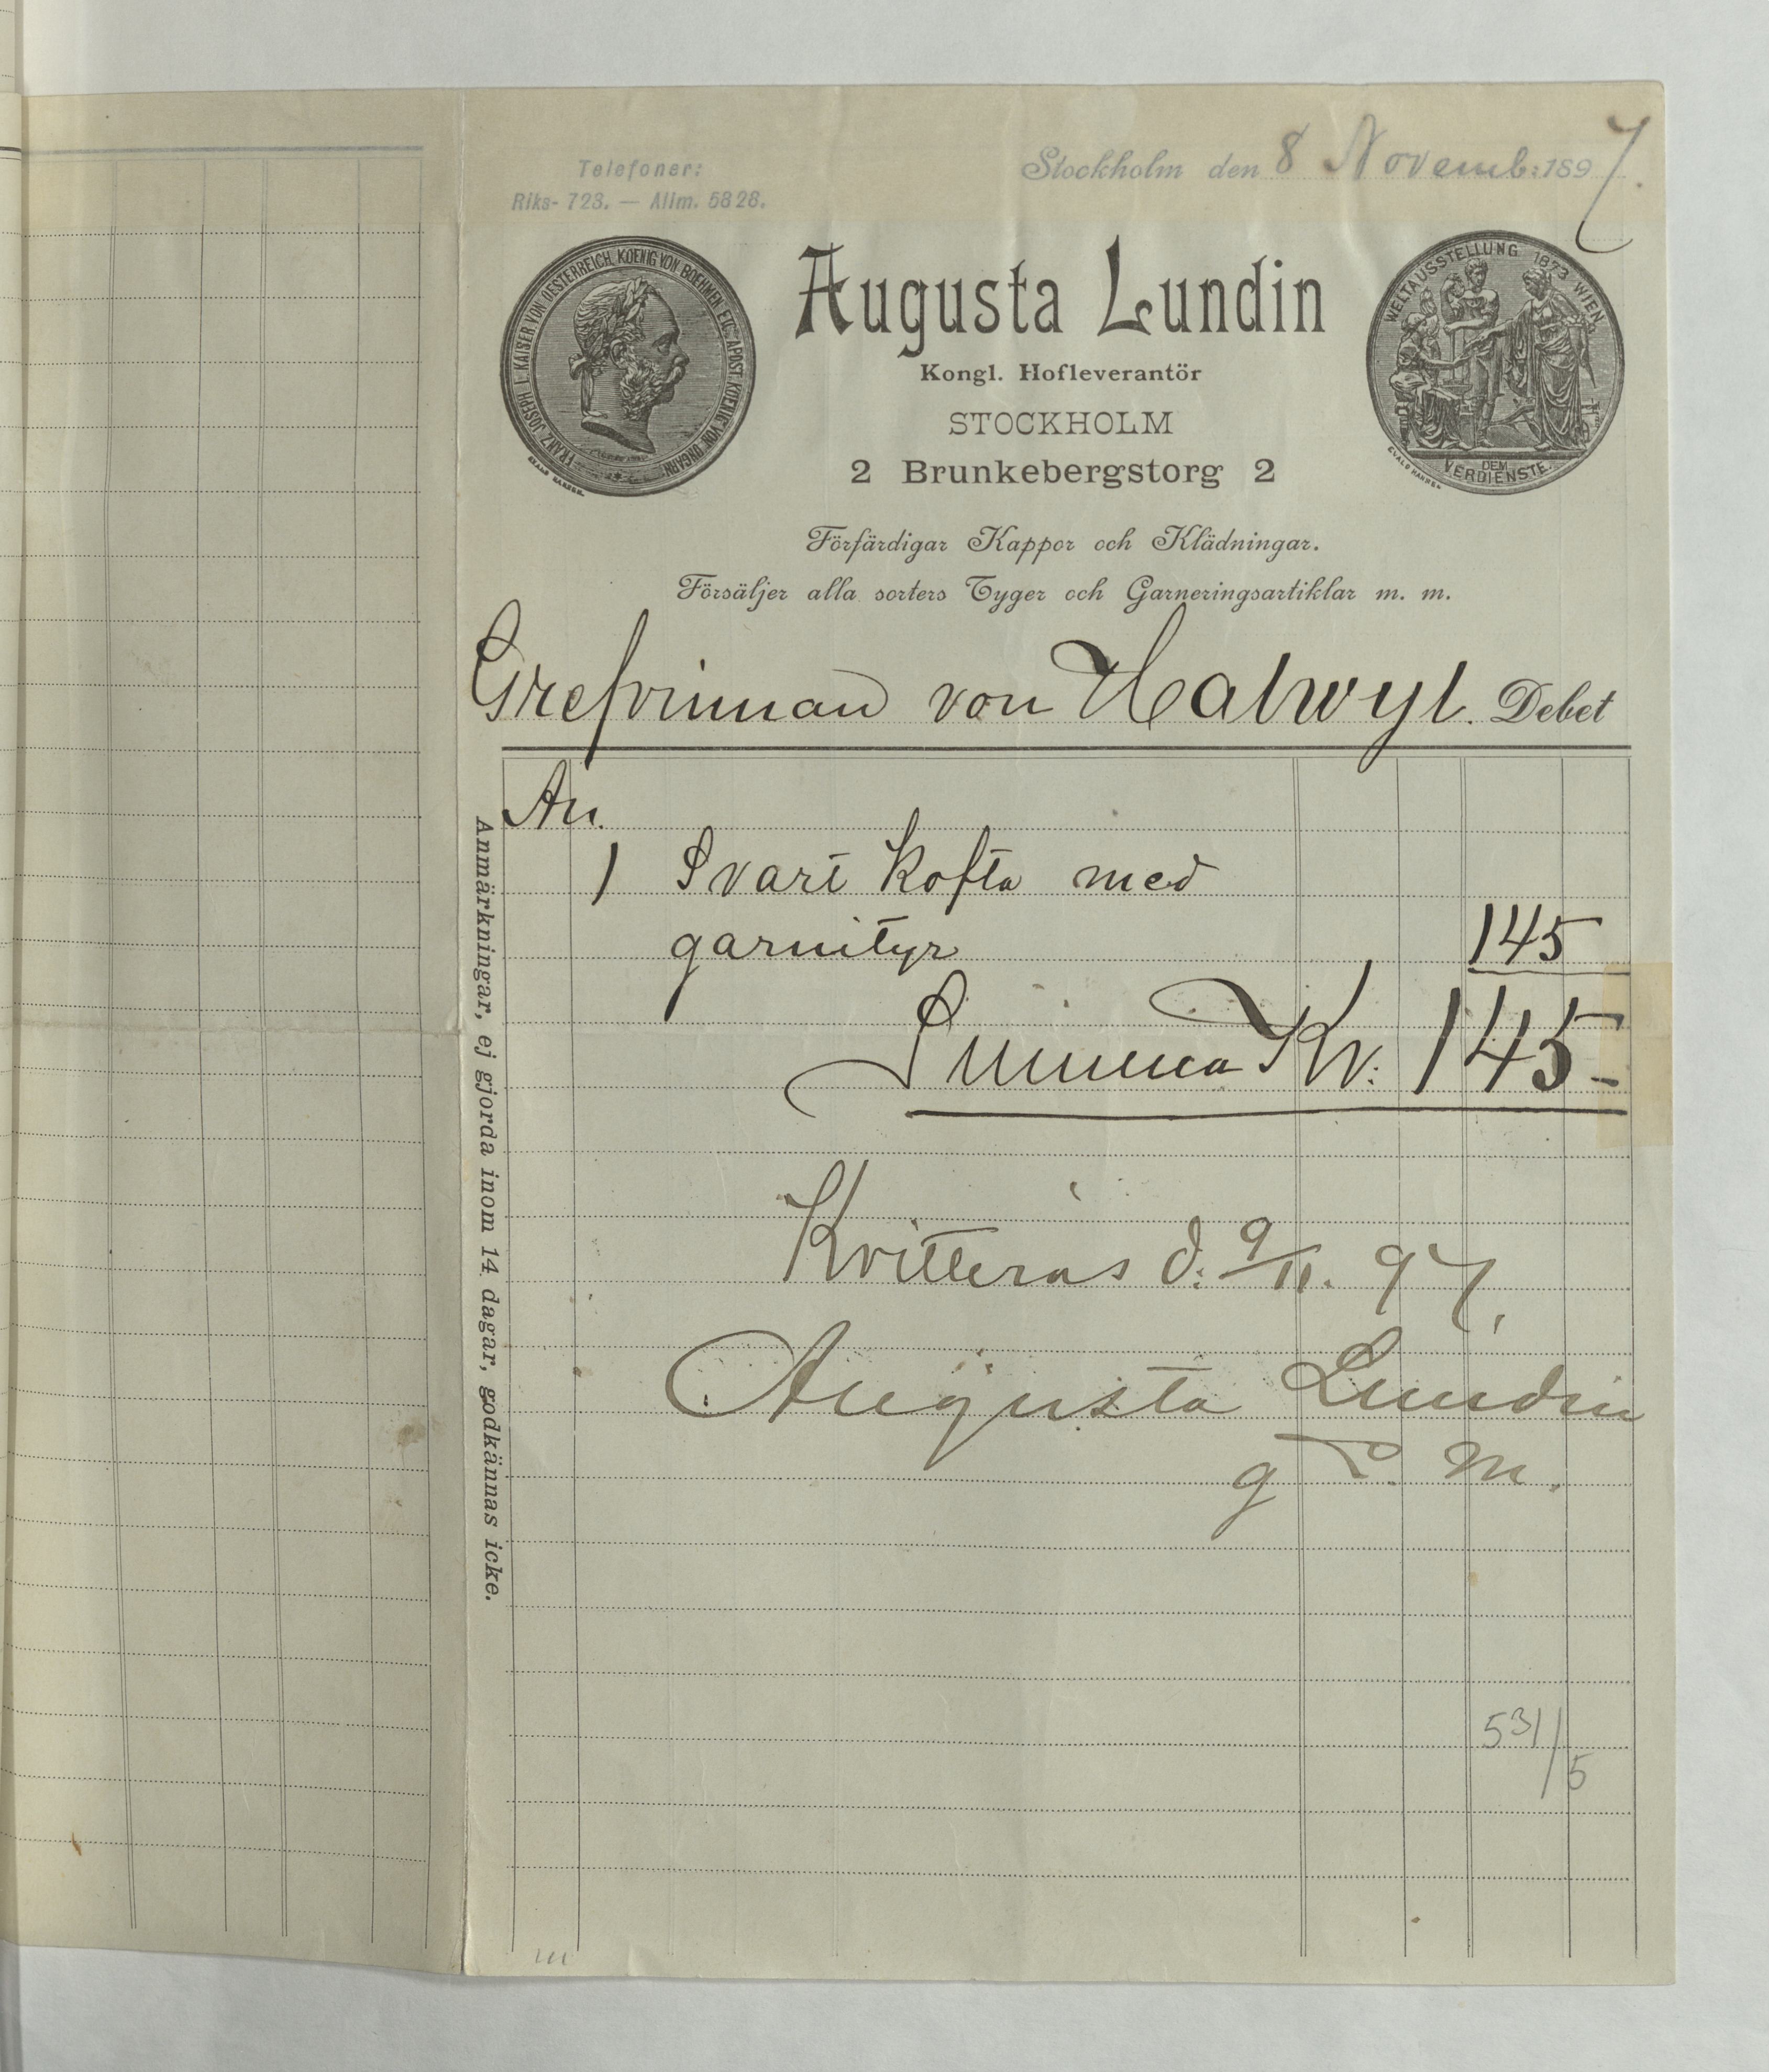 Telefoner:
Riks- 723. — Allm. 5828.
Stockholm den 8 Novemb: 1897.
FRANZ JOSEPH I. KAISER VON OESTERREICH, KOENIG VON BOEHMEN ETC. APOST. KOENIG VON UNGARN
Augusta Lundin
WELTAUSSTELLUNG 1873 WIEN.
DEM
VERDIENSTE.
Kongl. Hofleverantör
STOCKHOLM
2 Brunkebergstorg 2
Förfärdigar Kappor och Klädningar.
Försäljer alla sorters Tyger och Garneringsartiklar m. m.
Grefvinnan von Halwyl. Debet
An.
1 Svart kofta med
garnityr 145
Summa Kr: 145 -
Kvitteras d: 9/11. 97.
Augusta Lundin
g M.
531/5
Anmärkningar, ej gjorda inom 14 dagar, godkännas icke.